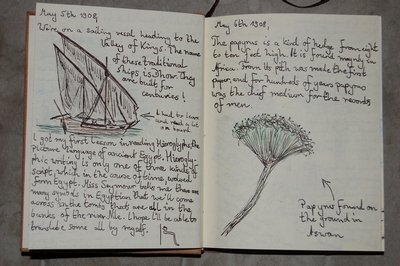 May 5th 1908,
We're on a sailing vessel heading to the
Valley of Kings. The name
of these traditional
ships is Dhow. They
are built for
centuries!
I had to learn
and read a lot
on board
I got my first Lesson in reading Hieroglyphs, the
Picture Language of ancient Egypt. Hierogly-
phic writing is only one of three kinds of
Script, which in the course of time, evolved
form Egypt. Miss Seymour tells me there are
many symbols in Egyptian that we'll come
across in the tombs that are all in the
banks of the river Nile. I hope I'll be able to
translate some all by myself.
May 6th 1908,
The papyrus is a kind of hedge from eight
to ten feet high. It is found mainly in
Africa. From its pith was made the first
paper, and for hundreds of years papyrus
was the chief medium for the records
of men.
Papyrus found on
the ground in
Aswan